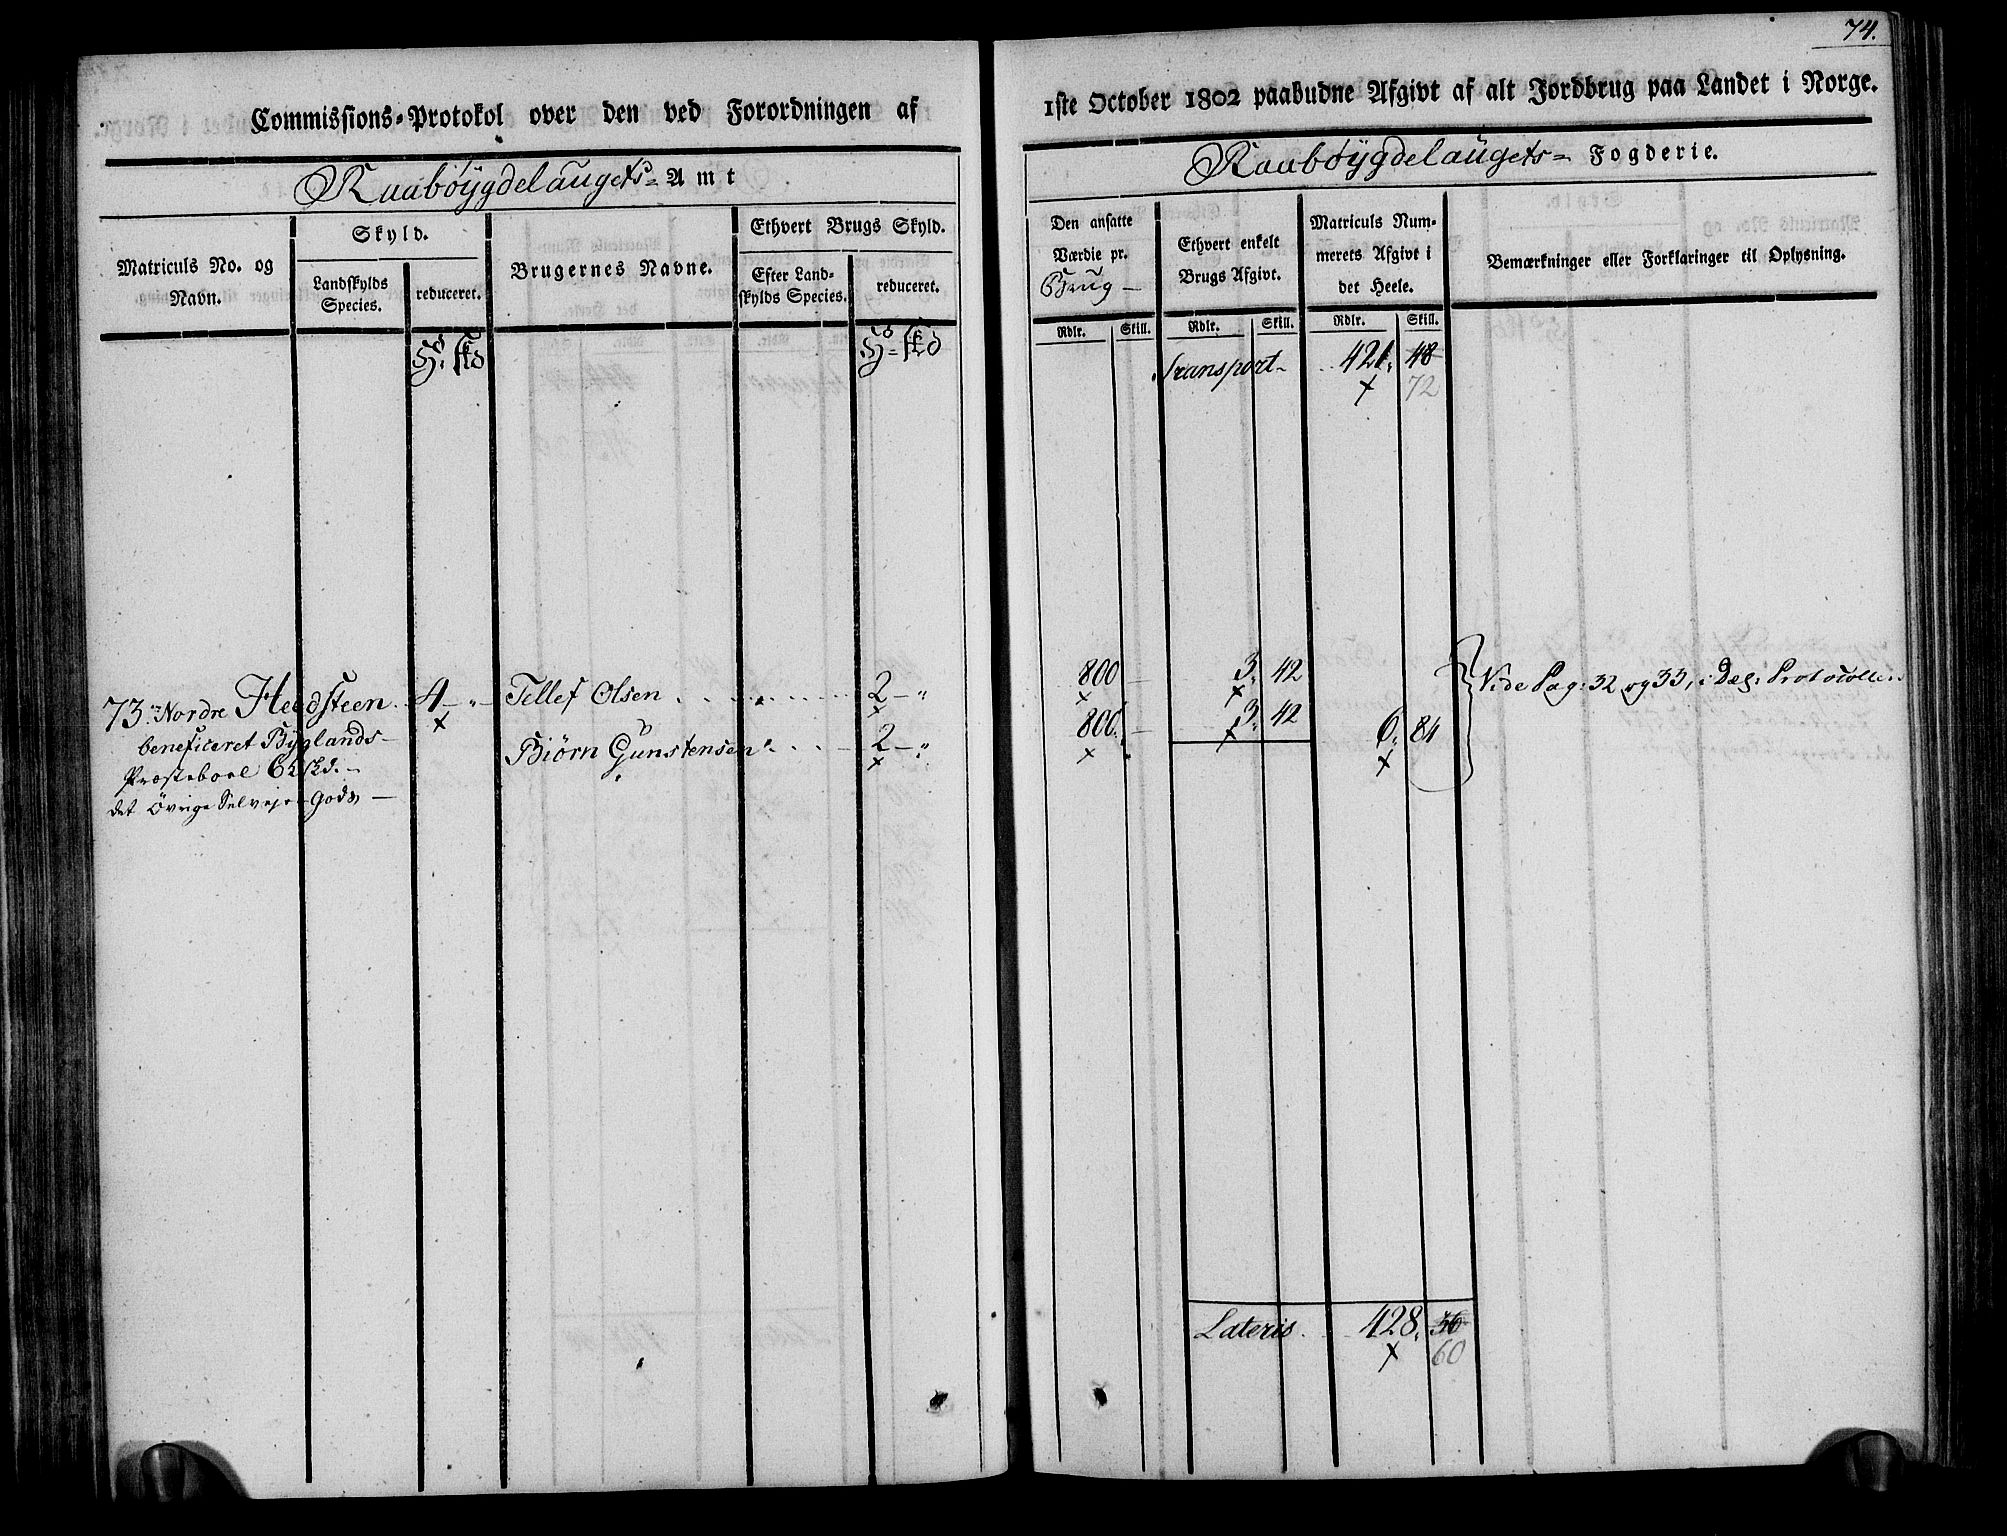 74.
Commissions-Protokol over den ved Forordningen af
1ste October 1802 paabudne Afgivt af alt Jordbrug paa Landet i Norge.
Raabøÿgdelaugets- Amt
Raabøÿgdelaugets- Fogderie.
Matriculs No. og
Navn.
Skyld.
Landskylds
Species.
reduceret.
Brugernes Navne.
Ethvert Brugs Skyld.
Efter Land-
skylds Species.
reduceret.
Den ansatte
Værdie pr.
Brug-
Rdlr. Skill.
Ethvert enkelt
Brugs Afgivt.
Rdlr. Skill.
Matriculs Num-
merets Afgivt i
det Heele.
Rdlr. Skill.
Bemærkninger eller Forklaringer til Oplysning.
Transport- 421. 48
72
73. Nordre Heedsteen 4 - „ - Tellef Olsen 2 - „ 800 - 3. 42
beneficeret Bÿglands-
Biørn Gunstensen 2 - „ 800. - 3. 42 6. 84
Præsteboel
det Övrige Selveje-Gods -
Vide Pag: 32 og 33, i Dag: Protocollen
Lateris 428. 36
60